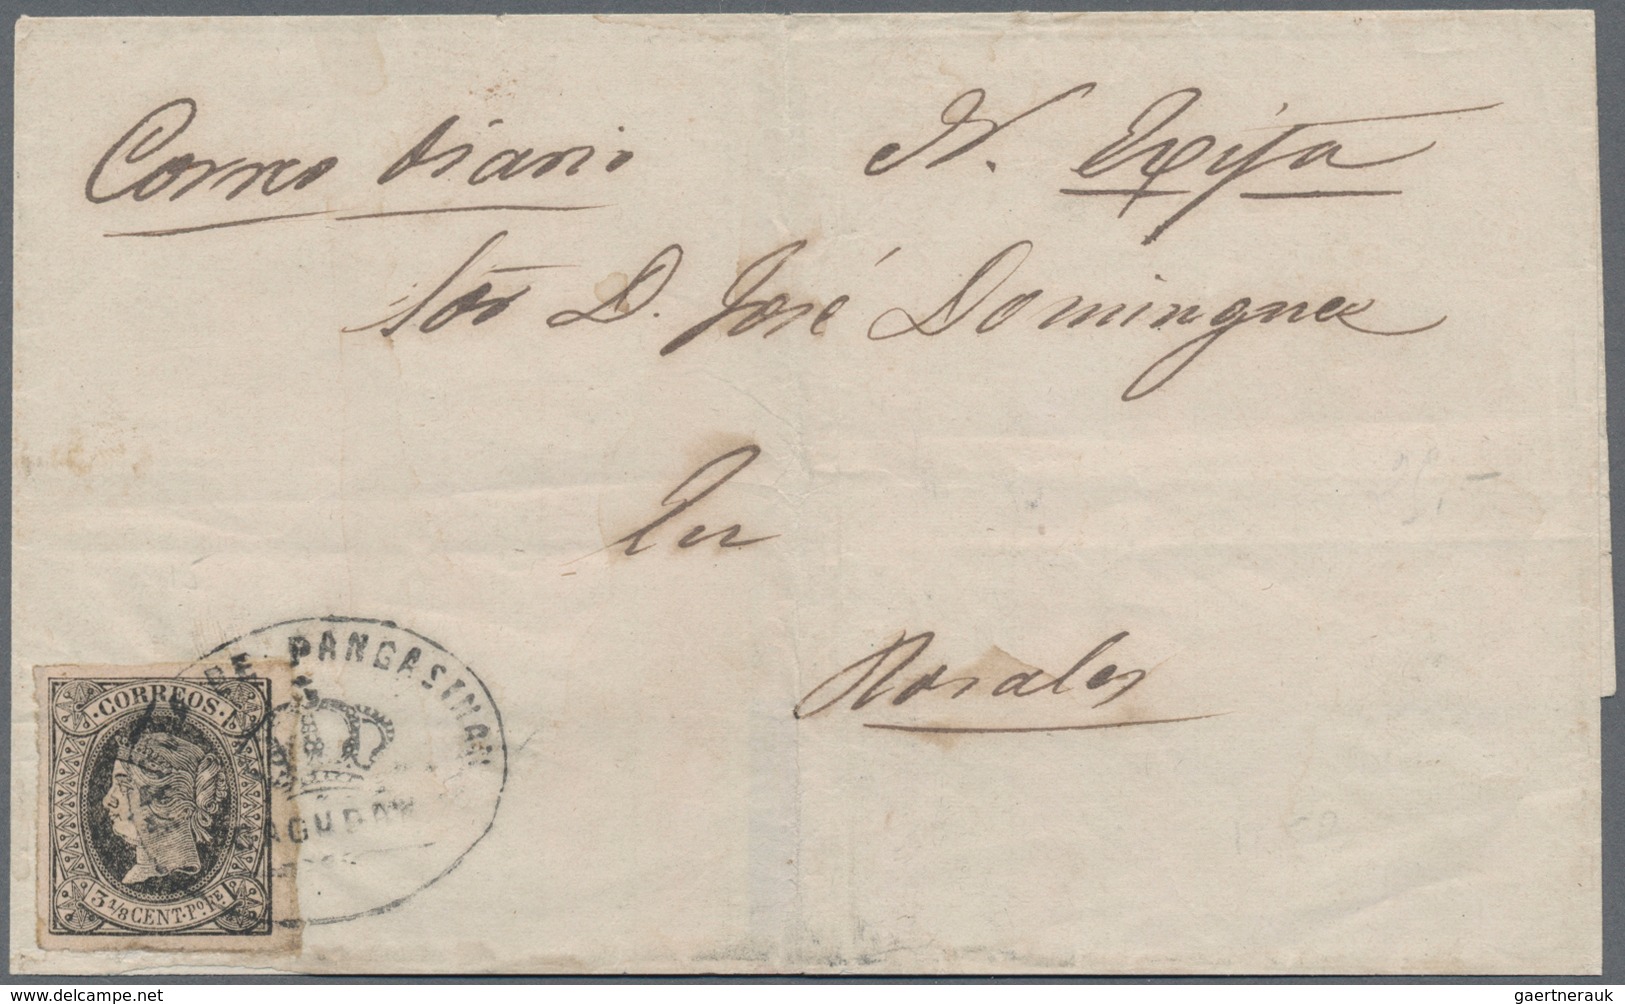 Correo diario
N. Ecija
Sor D. José Domingues
En
Rosales
DE PANGASINAN
DAGUPAN
CORREOS
3 1/8 CENT. Po. Fe.
delcampe.net
gaertnerauk